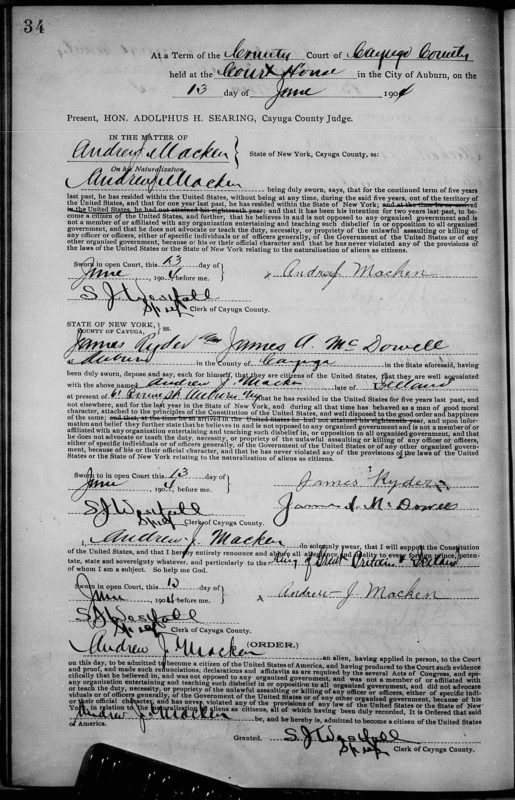 34
At a Term of the County Court of Cayuga County
held at the Court House in the City of Auburn, on the
13 day of June 1904
Present, HON. ADOLPHUS H. SEARING, Cayuga County Judge.
IN THE MATTER OF
Andrew J Macken } State of New York, Cayuga County, ss:
On his Naturalization.
Andrew J Macken being duly sworn, says, that for the continued term of five years
last past, he has resided within the United States, without being at any time, during the said five years, out of the territory of
the United States, and that for one year last past, he has resided within the State of New York; and at the time he so arrived
in the United States, he had not attained his eighteenth year; and that it has been his intention for two years last past, to be-
come a citizen of the United States, and further, that he believes in and is not opposed to any organized government and is
not a member of or affiliated with any organization entertaining and teaching such disbelief in or opposition to all organized
government, and that he does not advocate or teach the duty, necessity, or propriety of the unlawful assaulting or killing of
any officer or officers, either of specific individuals or of officers generally, of the Government of the United States or of any
other organized government, because of his or their official character and that he has never violated any of the provisions of
the laws of the United States or the State of New York relating to the naturalization of aliens as citizens.
Sworn in open Court, this 13 day of
June 1904 before me. } x Andrew J Macken
S. J. Westfall
Spl Clerk of Cayuga County.
STATE OF NEW YORK, } ss.
COUNTY OF CAYUGA,
James Ryder and James A. McDowell
Auburn in the County of Cayuga in the State aforesaid, having
been duly sworn, depose and say, each for himself, that they are citizens of the United States, that they are well acquainted
with the above named Andrew J. Macken late of Ireland
at present of Auburn NY that he has resided in the United States for five years last past, and
not elsewhere, and for one year last past in the State of New York, and during all that time has behaved as a man of good moral
character, attached to the principles of the Constitution of the United States, and disposed to the good order and happiness
of the same; and that, at the time he so arrived in the United States he had not attained his eighteenth year, and upon infor-
mation and belief they further state that he believes in and is not opposed to any organized government and is not a member of or
affiliated with any organization entertaining and teaching such disbelief in, or opposition to all organized government, and that
he does not advocate or teach the duty, necessity, or propriety of the unlawful assaulting or killing of any officer or officers,
either of specific individuals or of officers, generally, of the Government of the United States or of any other organized govern-
ment, because of his or their official character, and that he has never violated any of the provisions of the laws of the United
States or the State of New York relating to the naturalization of aliens as citizens.
Sworn to in open Court, this 13 day of
June 1904 before me. } James Ryder
S J Westfall James A. McDowell
Spl Clerk of Cayuga County.
I, Andrew J. Macken do solemnly swear, that I will support the Constitution
of the United States, and that I hereby entirely renounce and abjure all allegiance and fidelity to every foreign prince, poten-
tate, state and sovereignty whatever, and particularly to the King of Great Britain & Ireland
of whom I am a subject. So help me God.
Sworn in open Court this 13 day of
June 1904 before me. } x Andrew J. Macken
S J Westfall
Spl Clerk of Cayuga County.
(ORDER.)
Andrew J Macken an alien, having applied in person, to the Court
on this day, to be admitted to become a citizen of the United States of America, and having produced to the Court such evidence
and proof, and made such renunciation, declarations and affidavits as are required by the several Acts of Congress, and spe-
cifically that he believed in, and was not opposed to any organized government, and was not a member of or affiliated with
any organization entertaining and teaching such disbelief in or opposition to all organized government, and did not advocate
or teach the duty, necessity, or propriety of the unlawful assaulting or killing of any officer or officers, either of specific indi-
viduals or of officers generally, of the Government of the United States or of any other organized government, because of his
or their official character, and has never violated any of the provisions of the laws of the United States or the State of New
York in relation to the naturalization of aliens as citizens, all of which having been duly recorded, It is Ordered that said
Andrew J Macken be, and he hereby is, admitted to become a citizen of the United States
of America.
Granted. S J Westfall
Spl Clerk of Cayuga County.